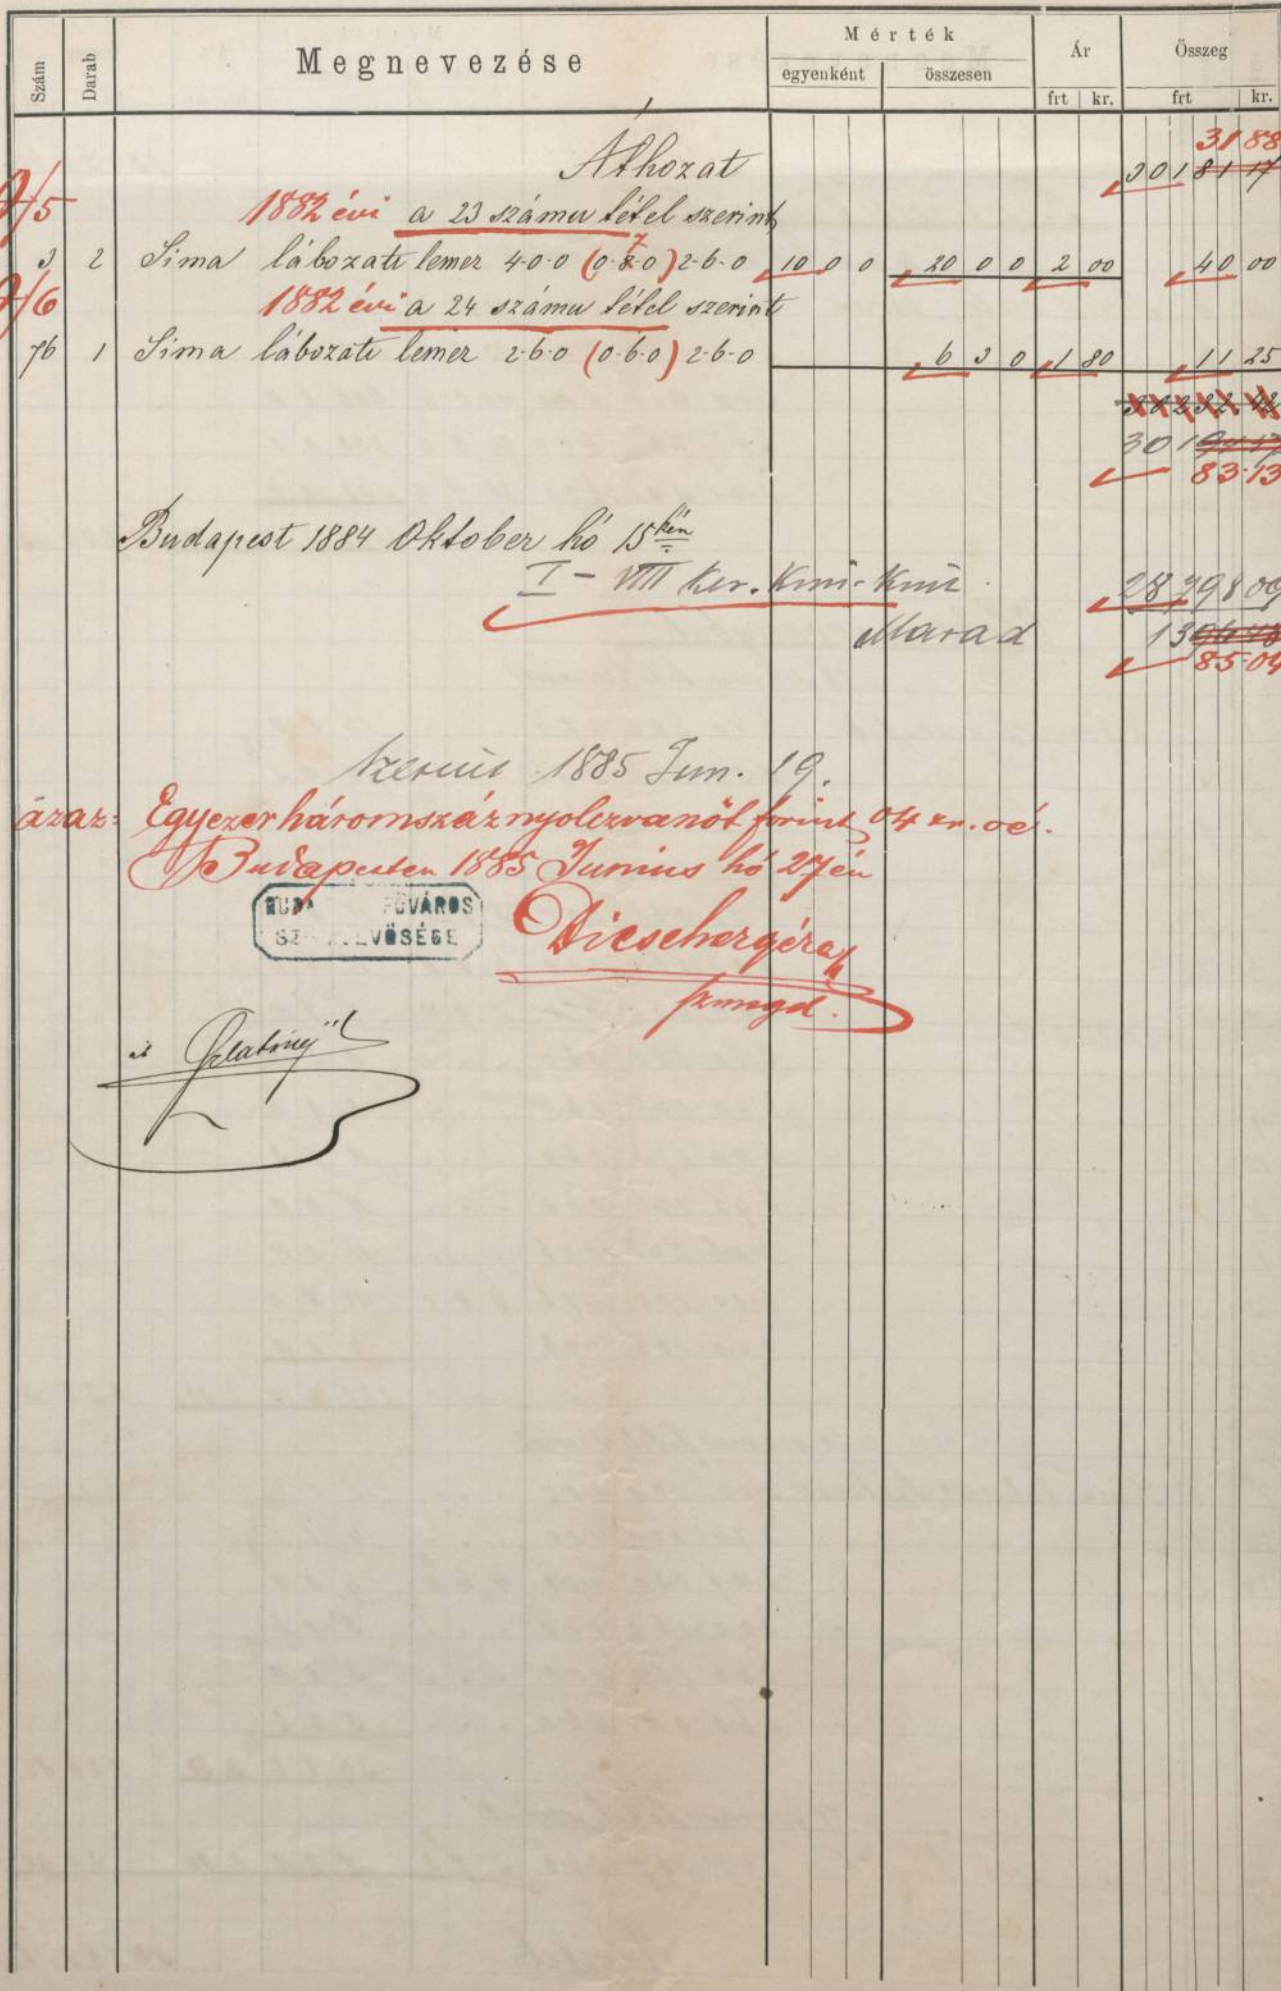 Szám Darab Megnevezése Mérték Ár Összeg
egyenként összesen
frt kr. frt kr.
31 88
Áthozat 301 81 17
1882 évi a 23 számu tétel szerint
3 2 Sima lábozati lemez 4·0·0 (0·8·0) 2·6·0 10 0 0 20 0 0 2 00 40 00
7
1882 évi a 24 számu tétel szerint
76 1 Sima lábozati lemez 2·6·0 (0·6·0) 2·6·0 6 3 0 1 80 11 25
30232 42
301
83·13
Budapest 1884 Oktober hó 15 kén
I – VIII Ker. 28798 09
Marad 139
85·04
1885 Jun. 19.
azaz: Egyezer háromszáznyolczvanöt forint 04 kr. oé.
Budapesten 1885 Junius hó 27 én
FŐVÁROS